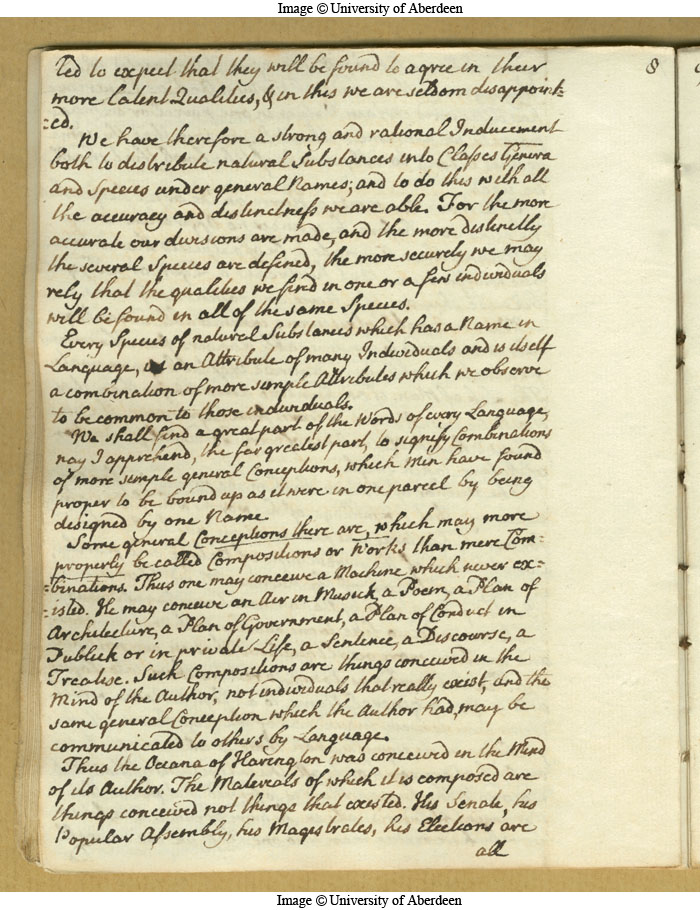 Image © University of Aberdeen
8
ted to expect that they will be found to agree in their
more latent Qualities, & in this we are seldom disappoint=
=ed.
We have therefore a strong and rational Inducement
both to distribute natural Substances into Classes Genera
and Species under general Names; and to do this with all
the accuracy and distinctness we are able. For the more
accurate our divisions are made, and the more distinctly
the several Species are defined, the more securely we may
rely that the qualities we find in one or a few individuals
will be found in all of the same Species.
Every Species of natural Substances which has a Name in
Language, is an Attribute of many Individuals and is itself
a combination of more simple Attributes which we observe
to be common to those individuals.
We shall find a great part of the Words of every Language,
nay I apprehend, the far greatest part, to signify Combinations
of more simple general Conceptions, which Men have found
proper to be bound up as it were in one parcel by being
designed by one Name
Some general Conceptions there are, which may more
properly be called Compositions or Works than mere Com=
=binations. Thus one may conceive a Machine which never ex=
=isted. He may conceive an Air in Musick, a Poem, a Plan of
Architecture, a Plan of Government, a Plan of Conduct in
Publick or in private Life, a Sentence, a Discourse, a
Treatise. Such Compositions are things conceived in the
Mind of the Author, not individuals that really exist, and the
same general Conception which the Author had, may be
communicated to others by Language.
Thus the Oceana of Harington was conceived in the Mind
of its Author. The Materials of which it is composed are
things conceived not things that existed. His Senate, his
Popular Assembly, his Magistrates, his Elections are
all
Image © University of Aberdeen